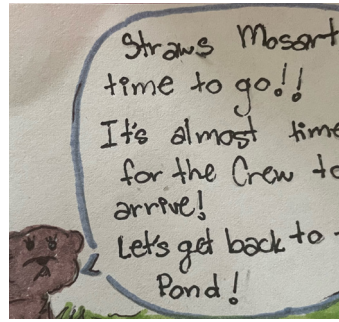 Straws Mosart
time to go!!
It's almost time
for the Crew to
arrive!
Let's get back to
Pond!